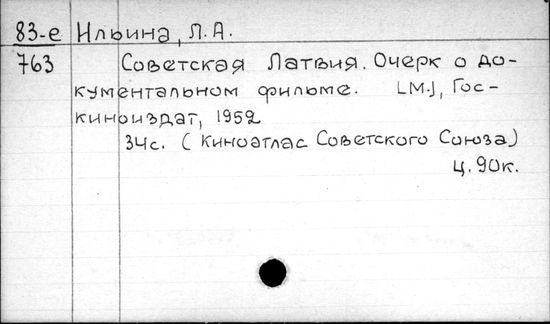 83-е Ильина, Л.А.
763 Советская Латвия. Очерк о до-
кументальном фильме. [М.], Гос-
киноиздат, 1952
34с. (Киноатлас Советского Союза)
ц. 90к.